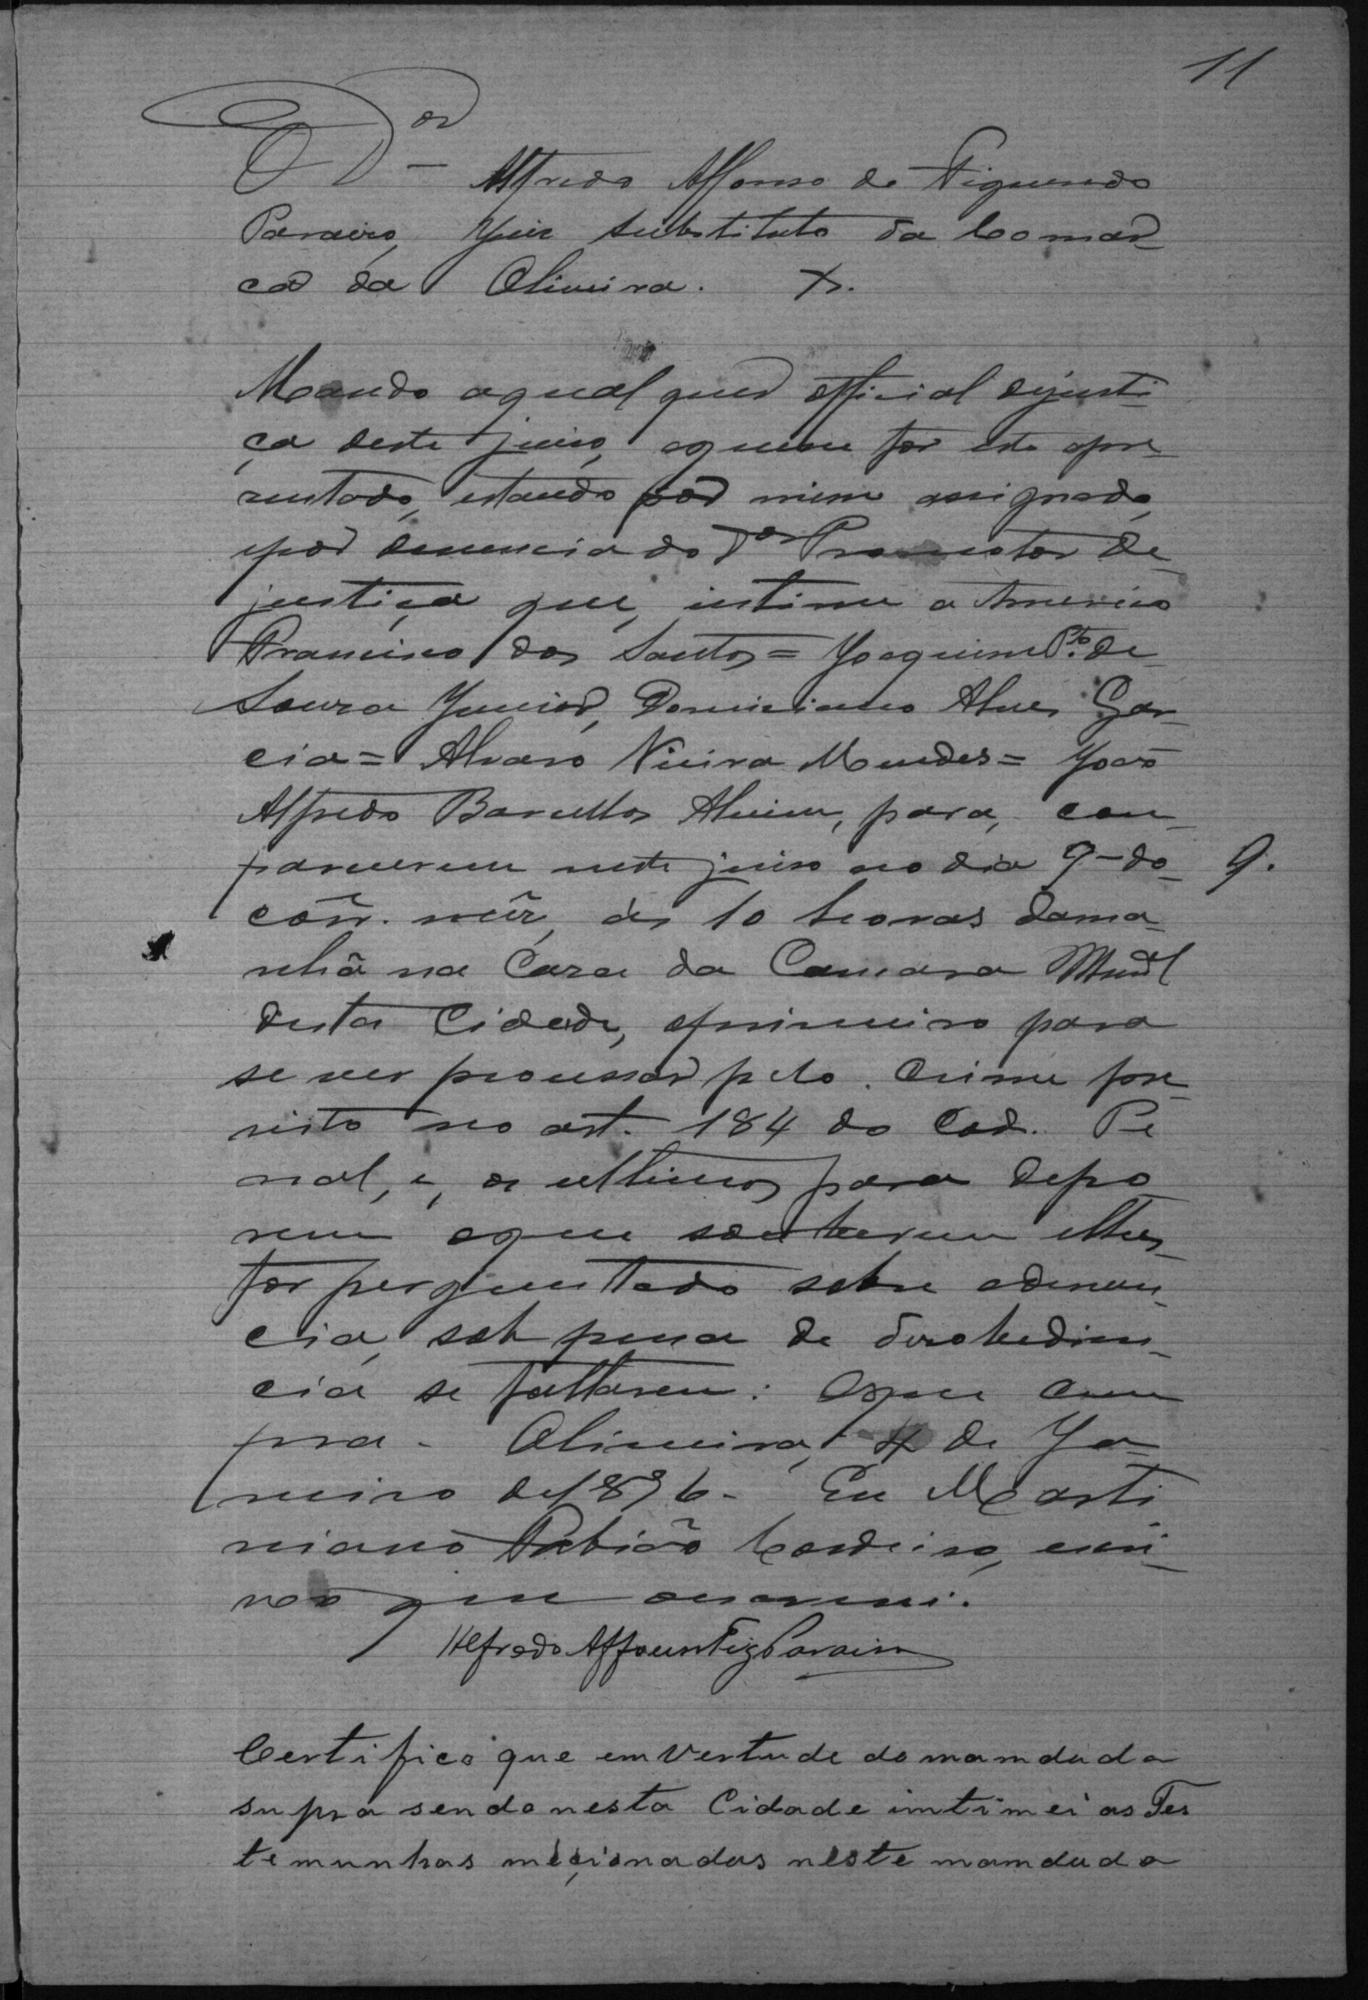 11
O D.or Alfredo Affonso de Figueredo
Paraiso, Juiz substituto da Comar-
ca da Oliveira. &.
Mando aqualquer official dejusti-
ça deste juiso, aquem for este apre-
zentado, estando por mim assignado,
epor denuncia do Dor Promotor de
justiça que, intime a Americo
Francisco dos Santos = Joaquim Pto. de
Souza Junior, Domiciano Alves Gar-
cia = Alvaro Vieira Mendes = João
Alfredo Barcellos Alvim, para, com-
parecerem neste juiso no dia 9 - do
corr. mez, ás 10 horas dama-
nhã na Caza da Camara Munal
desta Cidade, oprimeiro para
se ver processar pelo crime pre-
visto no art. 184 do Cod. Pe
nal, e, os ultimos para depo
rem oque souberem elhes
for perguntado sobre adenun-
cia, sob pena de desobedien-
cia se faltarem: Oque cum
pra. Oliveira, 4 de Ja-
neiro de 1896 - Eu Marti
niano Fabião Cordeiro, escri-
vão que escrevi.
Alfredo Affonso Figdo Paraiso
9.
Certifico que em vertude do mamdado
supra sendo nesta Cidade intimei as Tes
temunhas meçionadas neste mamdado